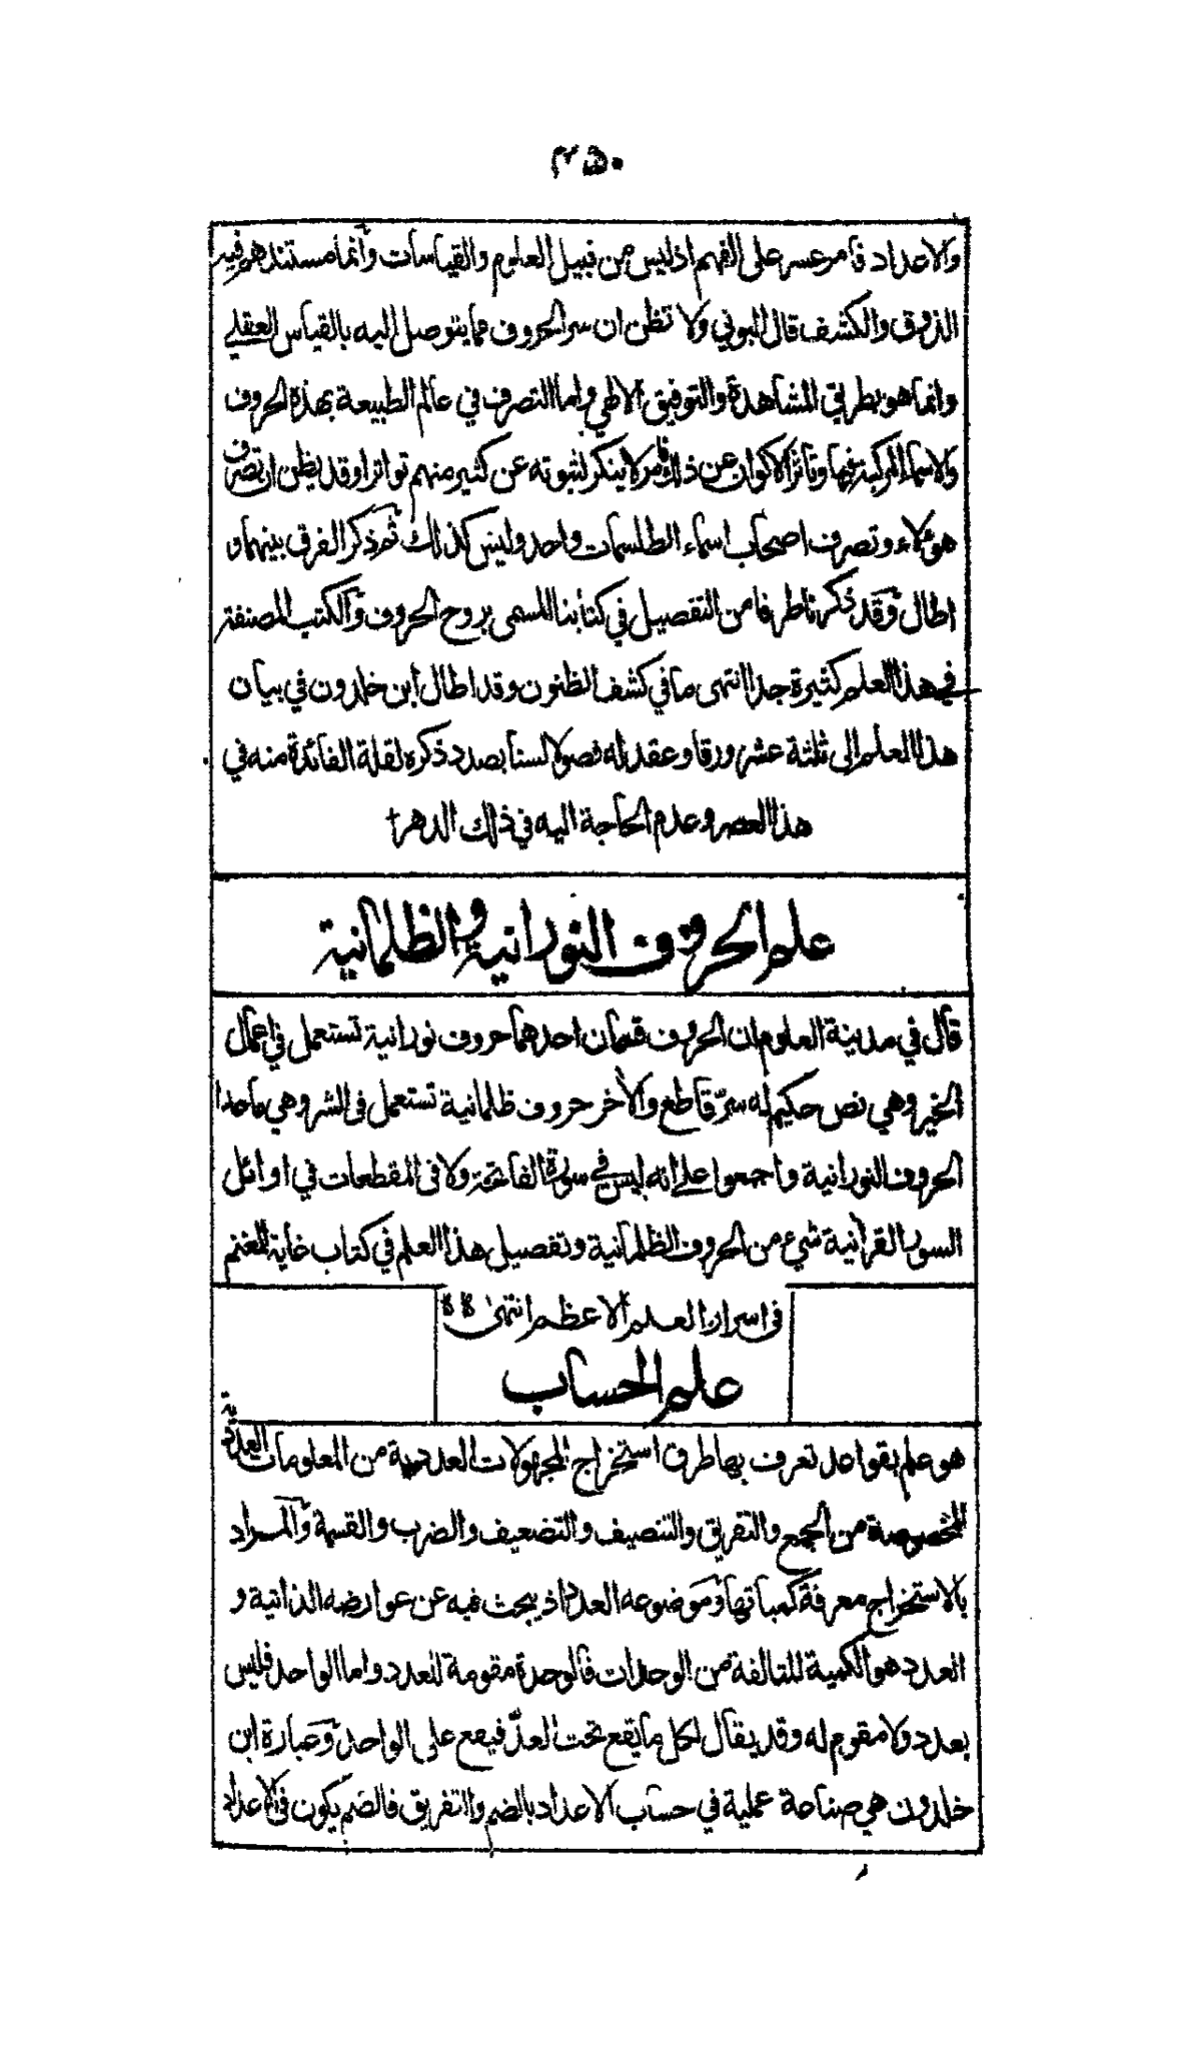 ٣٥٠
والاعداد فامر عسر على الفهم اذ ليس من قبيل العلوم والقياسات وانما مستندهم فيه
الذوق والكشف قال البوني ولا تظن ان سر الحروف مما يتوصل اليه بالقياس العقلي
وانما هو بطريق المشاهدة والتوفيق الالهي واما التصرف في عالم الطبيعة بهذه الحروف
والاسماء المركبة فيها وتأثر الاكوان عن ذلك فامر لا ينكر لثبوته عن كثير منهم تواترا وقد يظن ان تصرف
هؤلاء وتصرف اصحاب اسماء الطلسمات واحد وليس كذلك ثم ذكر الفرق بينهما و
اطال وقد ذكرنا طرفا من التفصيل في كتابنا المسمى بروح الحروف والكتب المصنفة
في هذا العلم كثيرة جدا انتهى ما في كشف الظنون وقد اطال ابن خلدون في بيان
هذا العلم الى ثلثة عشر ورقا وعقد له فصولا لسنا بصدد ذكره لقلة الفائدة منه في
هذا العصر وعدم الحاجة اليه في ذلك الدهر
علم الحروف النورانية والظلمانية
قال في مدينة العلوم ان الحروف قسمان احدهما حروف نورانية تستعمل في اعمال
الخير وهي نص حكيم له سرّ قاطع والآخر حروف ظلمانية تستعمل في الشر وهي ماعدا
الحروف النورانية واجمعوا على انه ليس في سورة الفاتحة ولا في المقطعات في اوائل
السور القرآنية شيء من الحروف الظلمانية وتفصيل هذا العلم في كتاب غاية المغنم
في اسرار العلم الاعظم انتهى
علم الحساب
هو علم بقواعد تعرف بها طرق استخراج المجهولات العددية من المعلومات العددية
المخصوصة من الجمع والتفريق والتنصيف والتضعيف والضرب والقسمة والمراد
بالاستخراج معرفة كمياتها وموضوعه العدد اذ يبحث فيه عن عوارضه الذاتية و
العدد هو الكمية المتالفة من الوحدات فالوحدة مقومة للعدد واما الواحد فليس
بعدد ولا مقوم له وقد يقال لكل ما يقع تحت العدّ فيقع على الواحد وعبارة ابن
خلدون هي صناعة عملية في حساب الاعداد بالضم والتفريق فالضم يكون في الاعداد